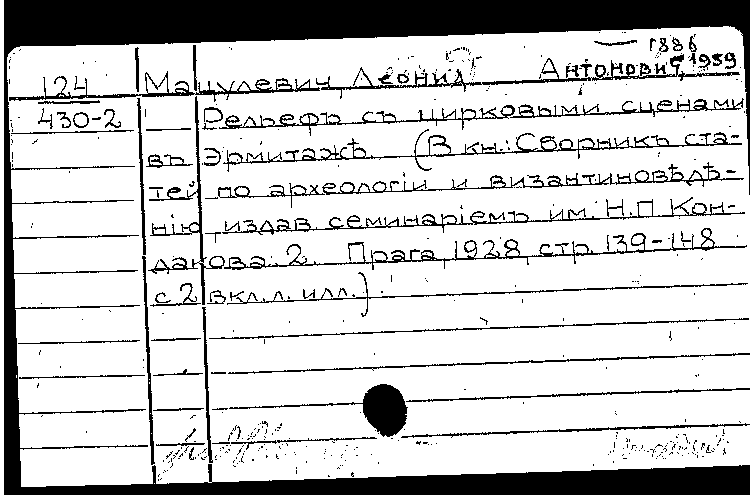 1886
124 Мацулевич, Леонид Антонович, 1959
430-2 Рельефъ съ цирковыми сценами
въ Эрмитажѣ. (В кн.: Сборникъ ста-
тей по археологіи и византиновѣдѣ-
нію, издав. семинаріемъ им. Н.П. Кон-
дакова. 2. Прага, 1928, стр. 139-148
с 2 вкл. л. илл.).